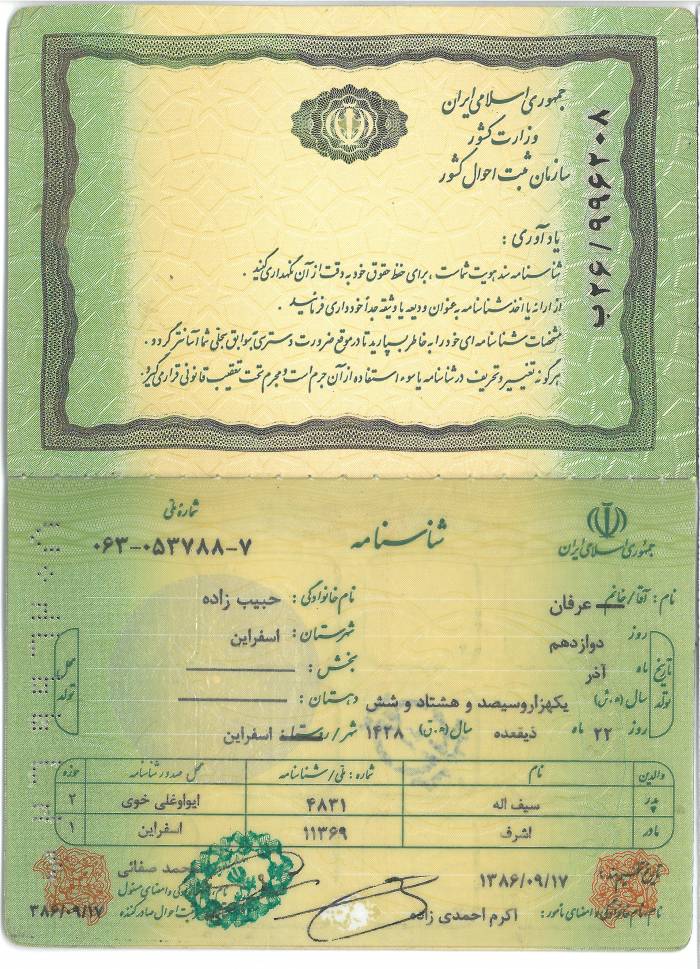 جمهوری اسلامی ایران
وزارت کشور
سازمان ثبت احوال کشور
ب۲۶/۹۹۶۲۰۸
یادآوری :
شناسنامه سند هویت شماست ، برای حفظ حقوق خود به دقت از آن نگهداری کنید .
از ارائه یا اخذ شناسنامه به عنوان ودیعه یا وثیقه جداً خودداری فرمائید .
مشخصات شناسنامه ای خود را به خاطر بسپارید تا در موقع ضرورت دسترسی بسوابق سجلی شما آسانتر گردد .
هرگونه تغییر و تحریف در شناسنامه یا سوء استفاده از آن جرم است و مجرم تحت تعقیب قانونی قرار می گیرد.
جمهوری اسلامی ایران
شناسنامه
شماره ملی
۰۶۳-۰۵۳۷۸۸-۷
نام : آقا/خانم عرفان نام خانوادگی : حبیب زاده
تاریخ تولد روز دوازدهم شهرستان : اسفراین محل تولد
ماه آذر بخش :
سال (ه.ش) یکهزاروسیصد و هشتاد و شش دهستان :
روز ۲۲ ماه ذیقعده سال (ه.ق) ۱۴۲۸ شهر/روستا : اسفراین
والدین نام شماره : ملی/شناسنامه محل صدور شناسنامه حوزه
پدر سیف اله ۴۸۳۱ ایواوغلی خوی ۲
مادر اشرف ۱۱۳۶۹ اسفراین ۱
۱۳۸۶/۰۹/۱۷ صفائی
نام، نام خانوادگی و امضای مأمور : اکرم احمدی زاده
۳۸۶/۰۹/۱۷